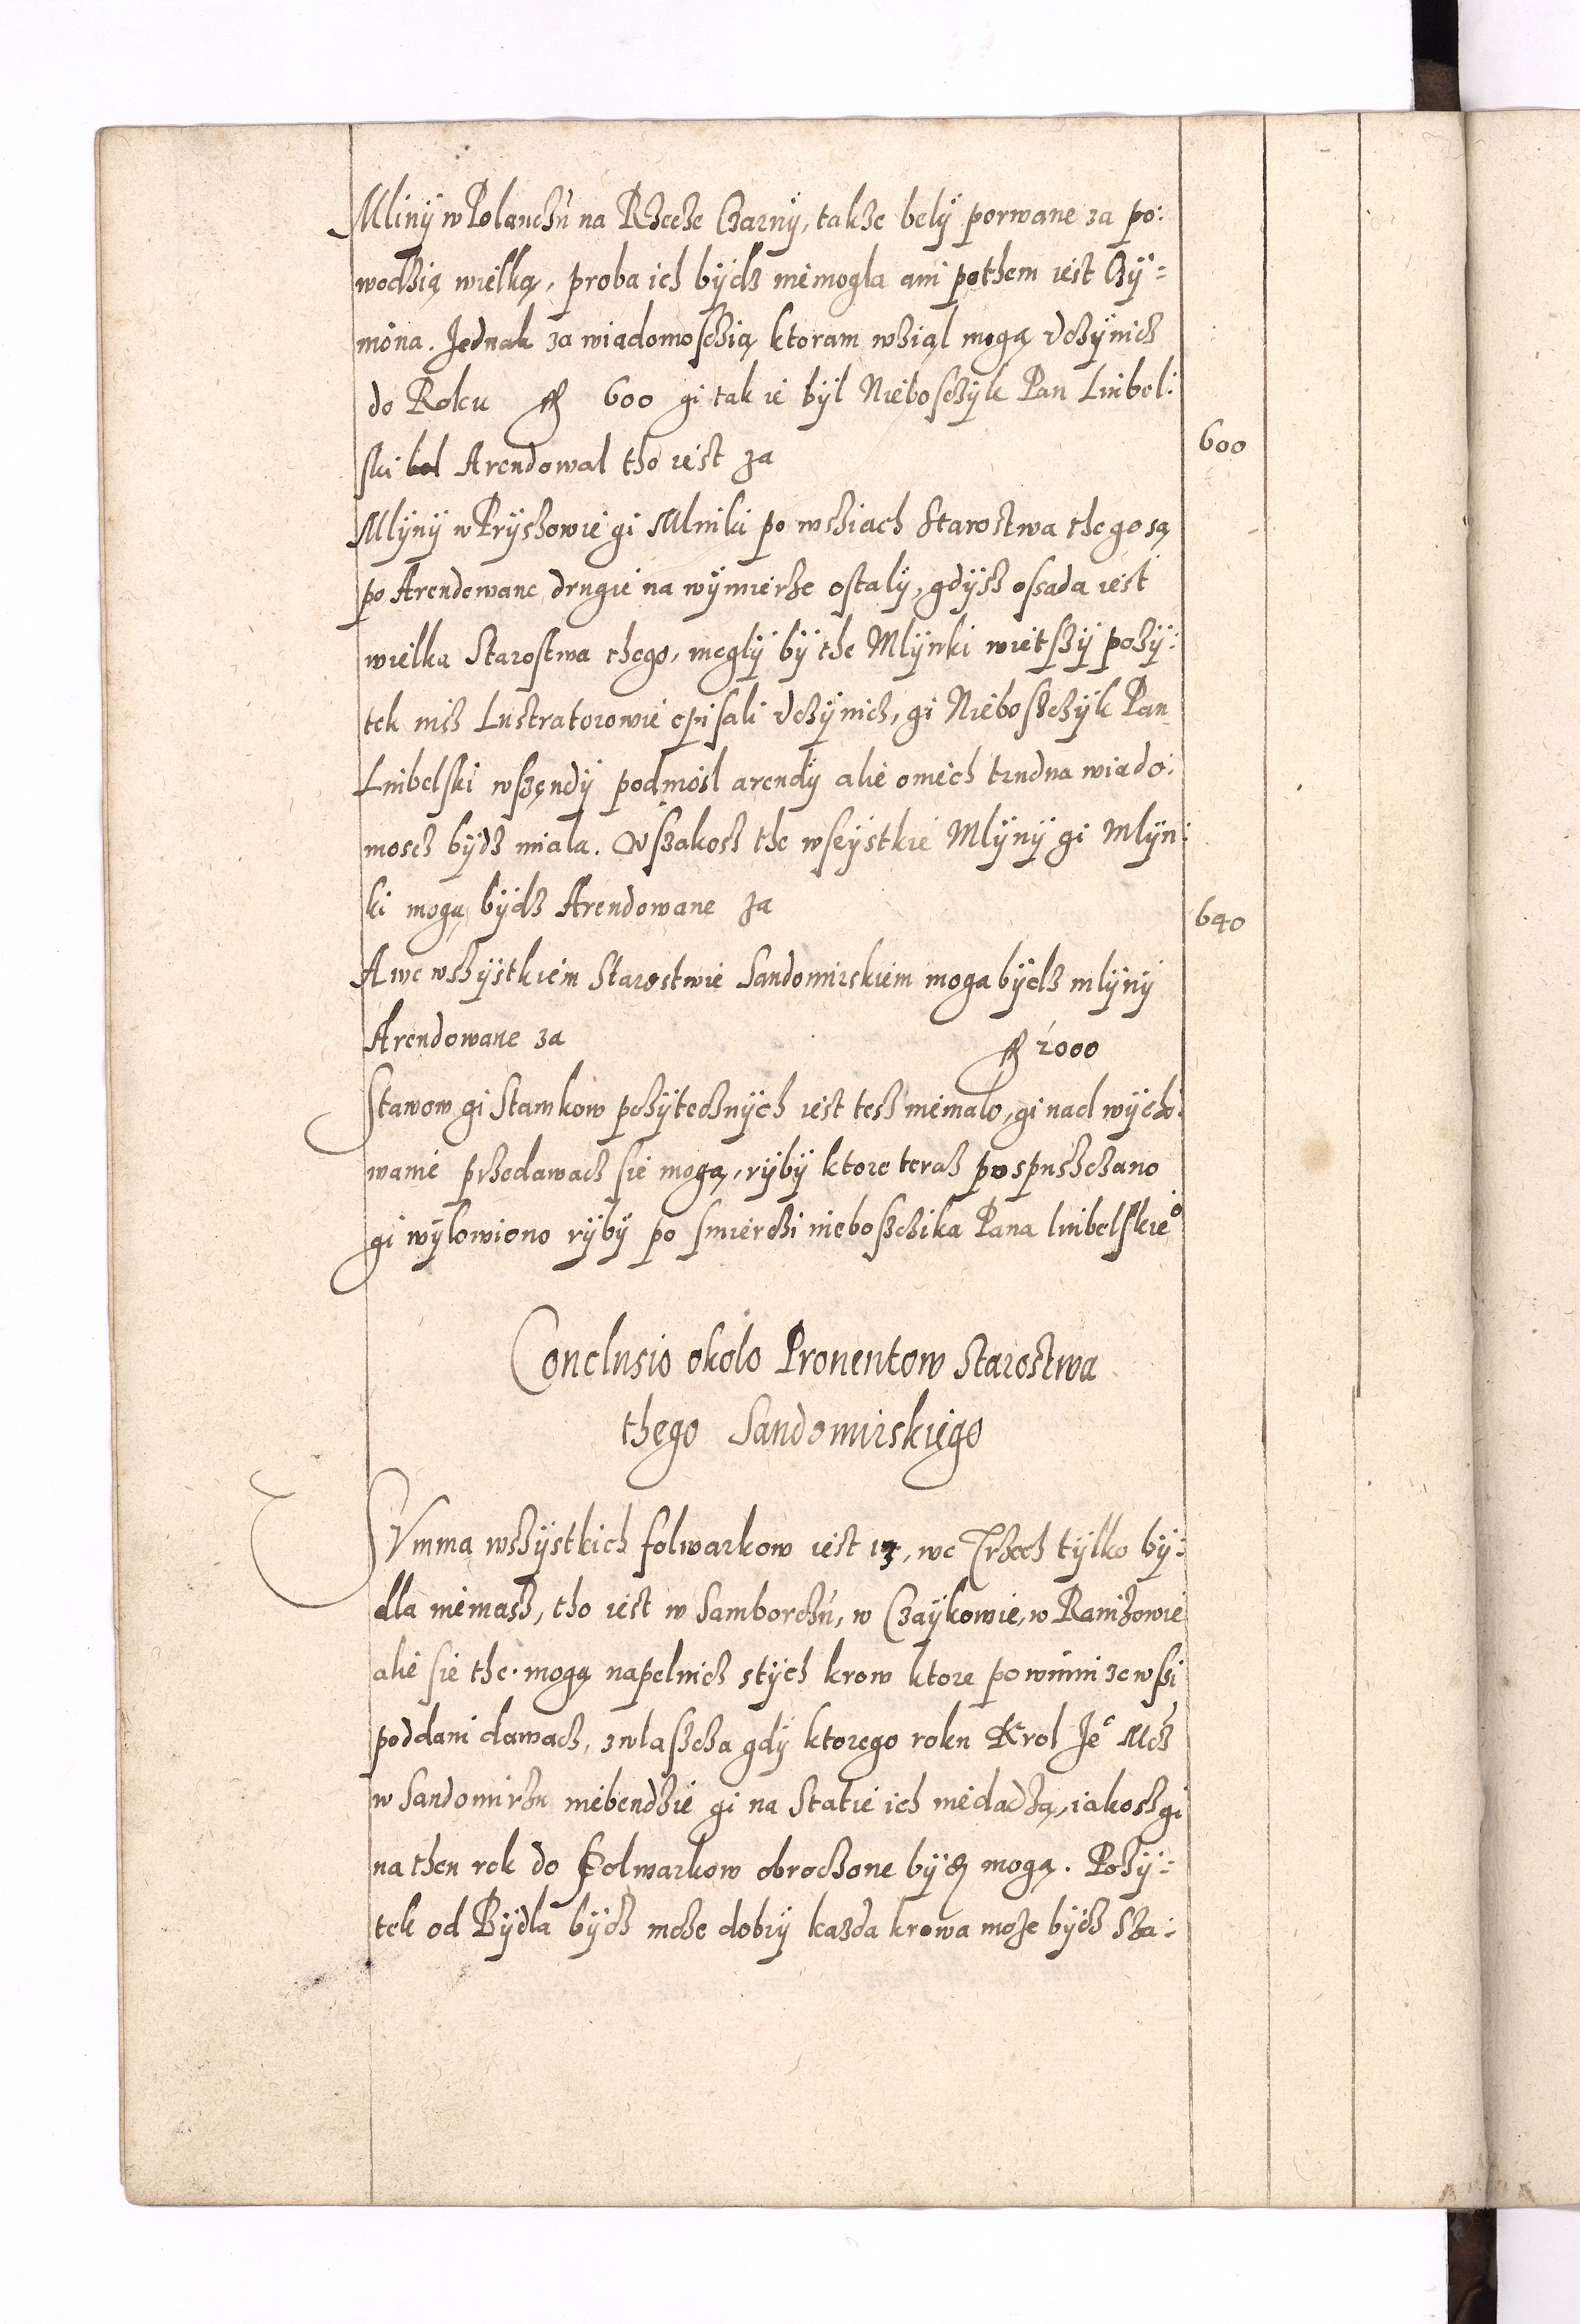 Mliny w Polanczu na Rzecze Czarny, takze bely porwane za po:
wodzią wielką, proba ich bydz niemogla ani pothem iest Czy=
niona. Jednak za wiadomosczią ktoram wziąl mogą vczynicz
do Roku ff 600 gi tak ie byl Nieboszyk Pan Lnibel:
ski bel Arendowal tho iest za
600
Mlyny w Pryszowie gi Mlniki po wsziach Starostwa thego są
po Arendowane drugie na wymierze ostaly, gdysz ossada iest
wielka Starostwa thego, mogly by the Mlynki wietszy pozy:
tek nisz Lustratorowie opisali vczynicz, gi Nieboszczyk Pan
Lnibelski wszęndy podniosl arendy alie onich trudna wiado:
moscz bydz miala. Wszakosz the wseystkie Mlyny gi Mlyn:
ki mogą bydz Arendowane za
640
A we wszystkiem Starostwie Sandomirskiem moga bydz mlyny
Arendowane za ff 2000
Stawow gi Stawkow pozytecznych iest tesz niemalo, gi nad wycho:
wanie przedawacz sie mogą, ryby ktore teraz pospuszczano
gi wylowiono ryby po smierczi nieboszczika Pana lnibelskie°
Conclusio okolo Prouentow Starostwa
thego Sandomirskięgo
SVmma wszystkich folwarkow iest 13, we Trzech tylko by:
dla niemasz, tho iest w Samborczu, w Czaykowie, w Ranizowie
alie sie the mogą napelnicz stych krow ktore powinni ze wsi
poddani dawacz, zwlaszcza gdy ktorego roku Krol Je° Mcz
w Sandomirzu niebendzie gi na Statie ich niedadzą, iakosz gi
na then rok do Folwarkow obroczone bydz mogą. Pozy=
tek od Bydla bydz moze dobry kazda krowa moze bydz Sza: